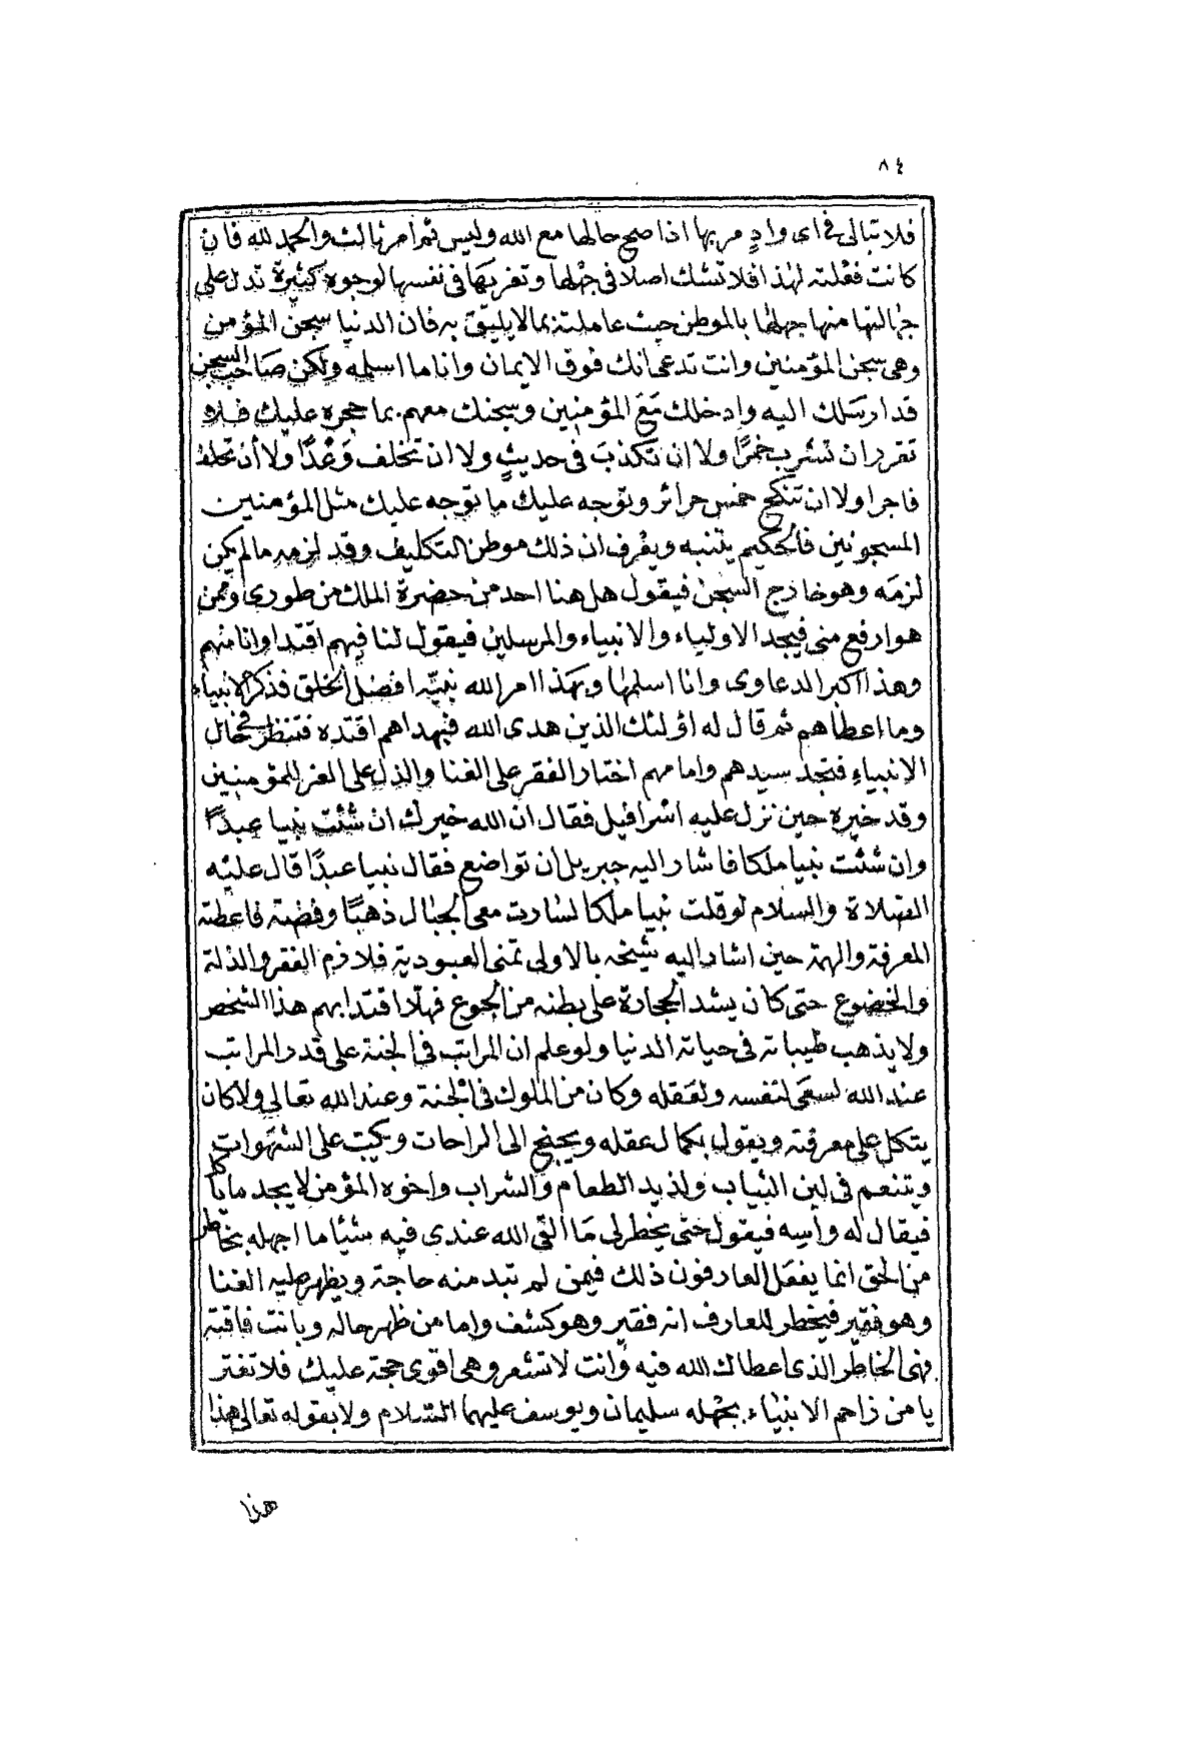 ٨٤
فلا تبالى فى اى وادٍ مر بها اذا صح حالها مع الله وليس ثم امر ثالث والحمد لله فان
كانت فعلته لهذا فلا تشك اصلا فى جهلها وتعريها فى نفسها لوجوه كثيرة تدل على
جهالتها منها جهلها بالموطن حيث عاملته بما لا يليق به فان الدنيا سجن المؤمن
وهى سجن المؤمنين وانت تدعى انك فوق الايمان وانا ما اسلمه ولكن صاحب السجن
قد ارسلك اليه وادخلك مع المؤمنين وسجنك معهم بما حجره عليك فلا
تقرر ان تشرب خمرًا ولا ان تكذب فى حديثٍ ولا ان تخلف وعدًا ولا أن
فاجرا ولا ان تنكح خمس حرائر وتوجه عليك ما توجه عليك مثل المؤمنين
المسجونين فالحكيم يتنبه ويعرف ان ذلك موطن التكليف وقد لزمه ما لم يكن
لزمه وهو خارج السجن فيقول هل هنا احد من حضرة الملك من طورى وممن
هو ارفع منى فيجد الاولياء والانبياء والمرسلين فيقول لنا فيهم اقتدا وانا منهم
وهذا اكبر الدعاوى وانا اسلمها وبهذا امر الله نبيّه افضل الخلق فذكر الانبياء
وما اعطاهم ثم قال له اولئك الذين هدى الله فبهداهم اقتده فتنظر فى حال
الانبياء فتجد سيدهم وامامهم اختار الفقر على الغنا والذل على العز للمؤمنين
وقد خيره حين نزل عليه اسرافيل فقال ان الله خيرك ان شئت نبيا عبدًا
وان شئت نبيا ملكا فاشار اليه جبريل ان تواضع فقال نبيا عبدًا قال عليه
الصلاة والسلام لو قلت نبيا ملكا لسارت معى الجبال ذهبًا وفضة فاعطته
المعرفة والهمة حين اشار اليه شيخه بالاولى تمنى العبودية فلازم الفقر والذلة
والخضوع حتى كان يشد الحجارة على بطنه من الجوع فهلّا اقتدا بهم هذا الشخص
ولا يذهب طيباته فى حياته الدنيا ولو علم ان المراتب فى الجنة على قدر المراتب
عند الله لسعى لنفسه ولعقله وكان من الملوك فى الجنة وعند الله تعالى ولا كان
يتكل على معرفته ويقول بكمال عقله ويجنح الى الراحات ويكب على الشهوات
ويتنعم فى لين الثياب ولذيد الطعام والشراب واخوه المؤمن لا يجد ما ياكل
فيقال له واسه فيقول حتى يخطر لى ما القى الله عندى فيه شيئا ما اجهله بخاطر
من الحق انما يفعل العارفون ذلك فيمن لم تبد منه حاجة ويظهر عليه الغنا
وهو فقير فيخطر للعارف انه فقير وهو كشف واما من ظهر حاله وبانت فاقته
فهى الخاطر الذى اعطاك الله فيه وانت لا تشعر وهى اقوى حجة عليك فلا تغتر
يا من زاحم الانبياء بجهله سليمان ويوسف عليهما السلام ولا بقوله تعالى هذا
هذا